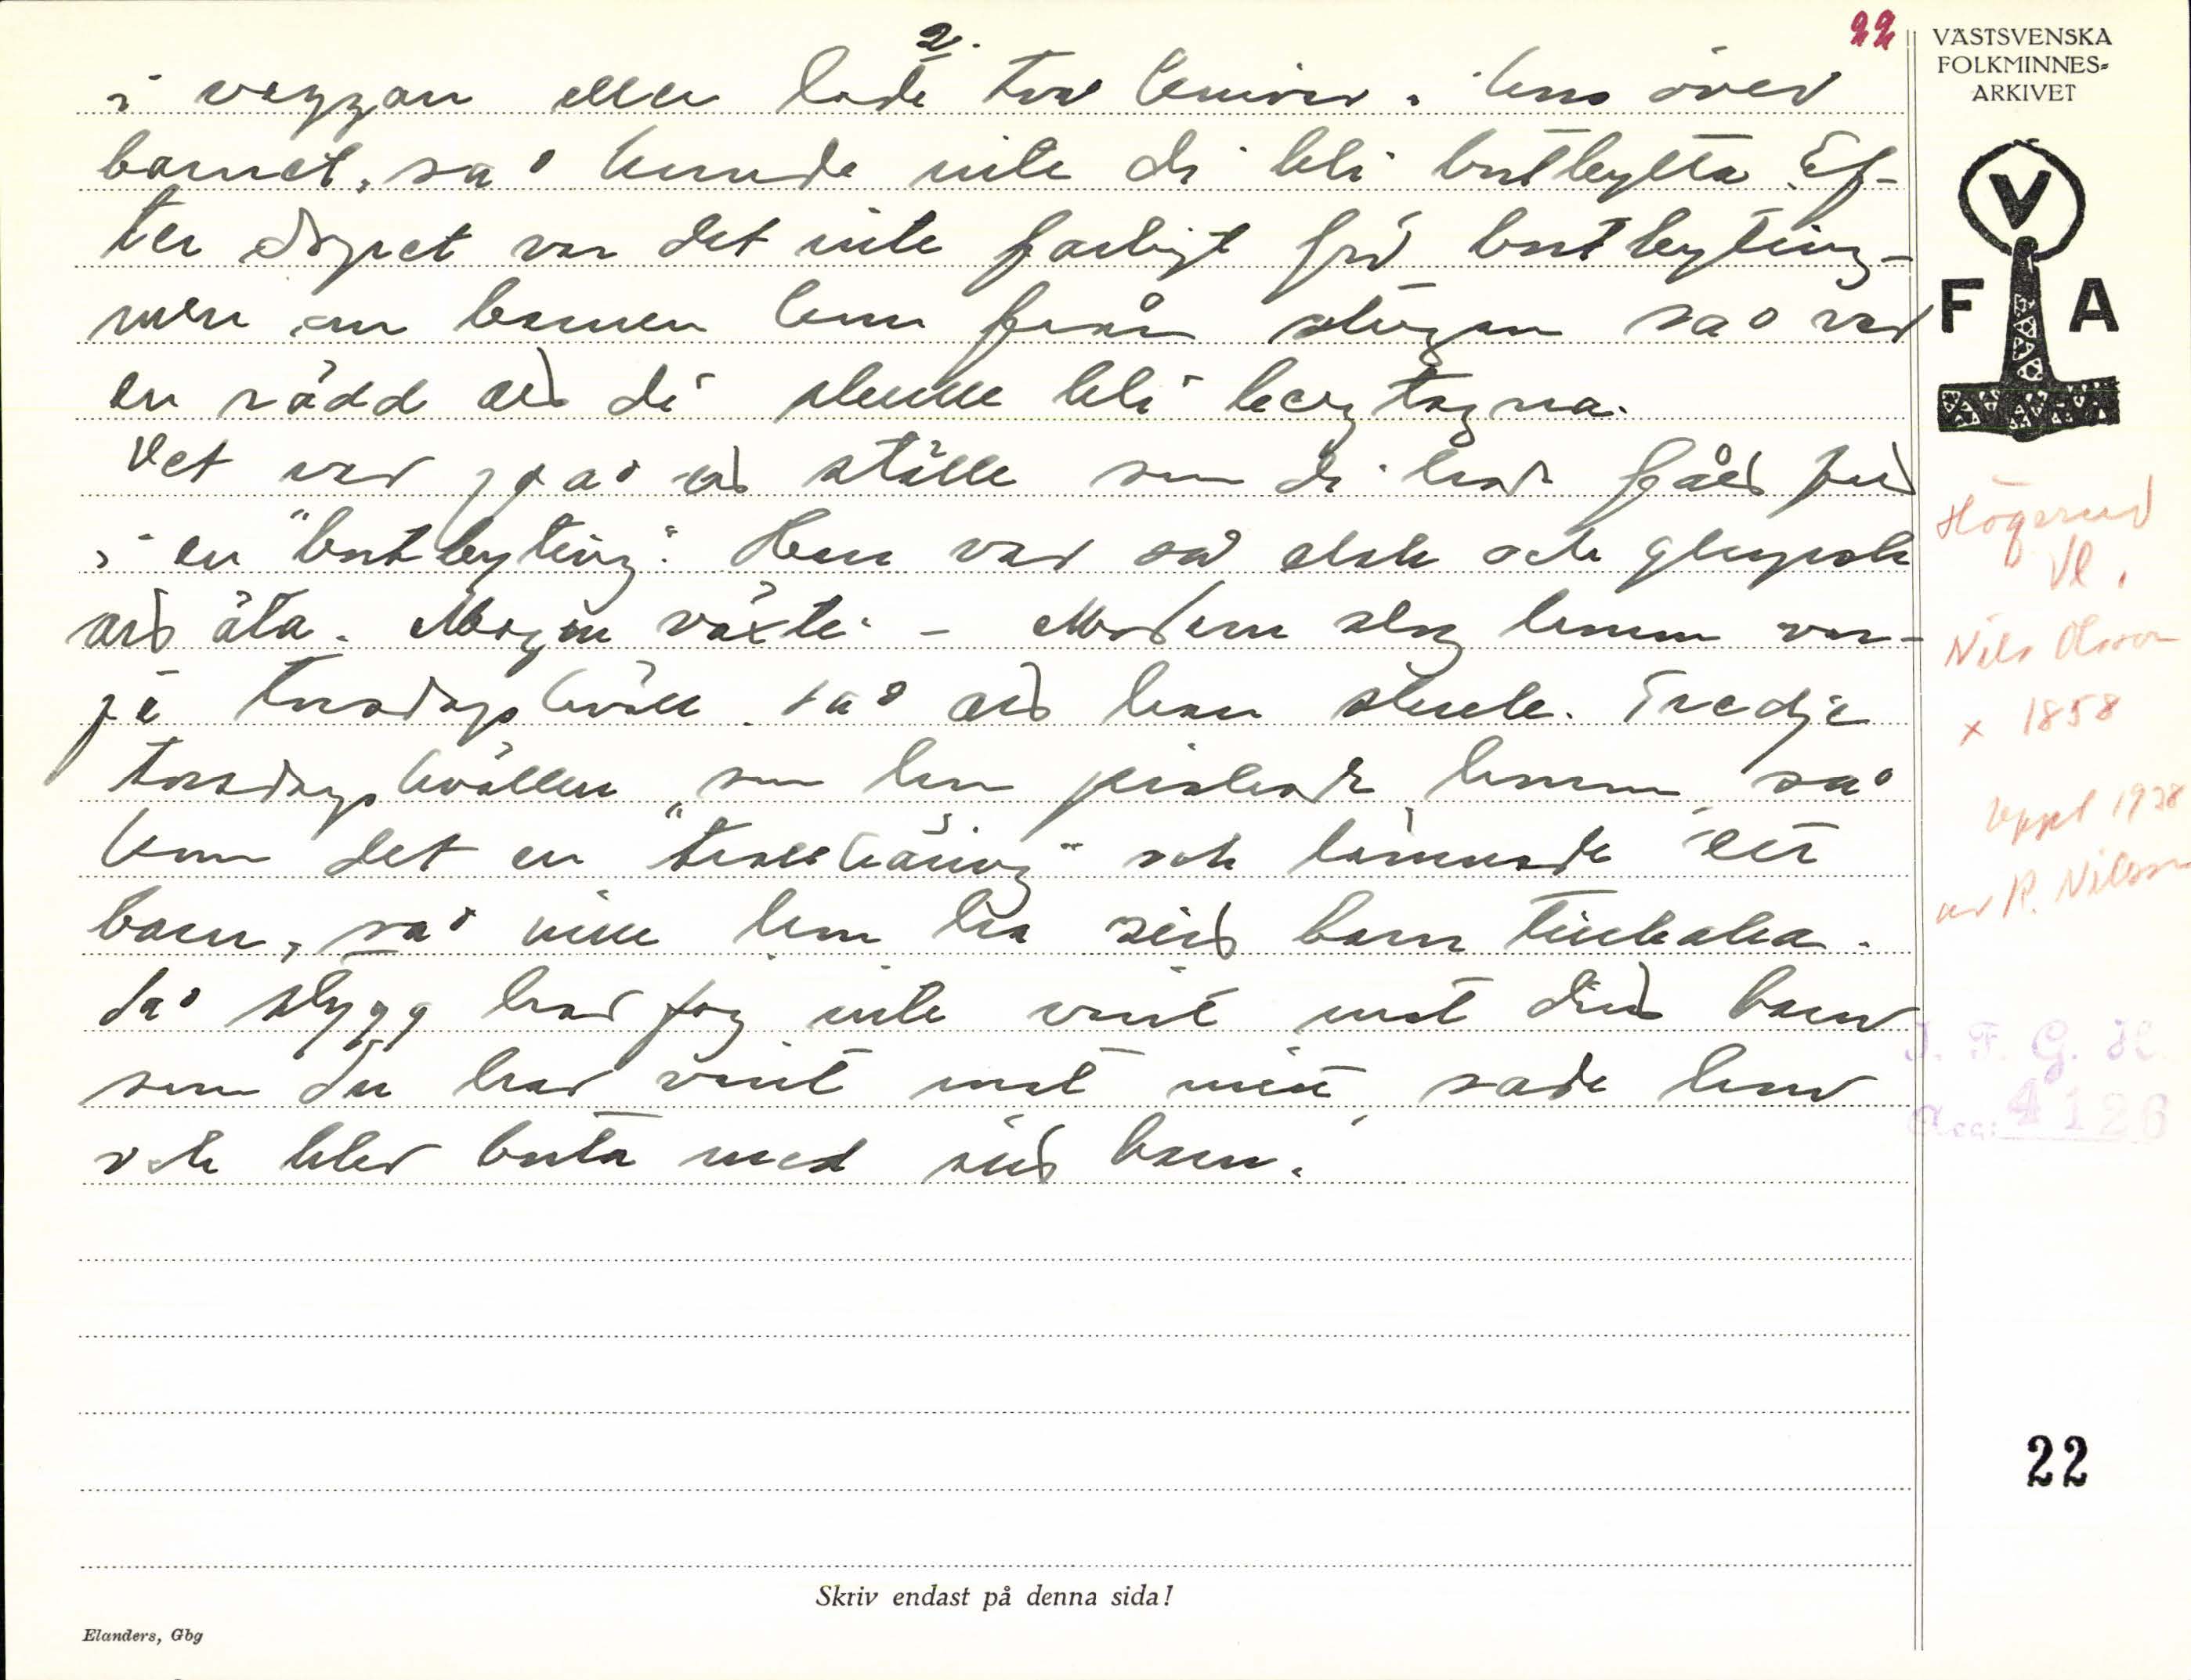 2.
22
i vaggan eller lade två knivar i kors över
barnet, så kunde inte di bli bortbytta. Ef-
ter dopet var det inte farligt för bortbyting-
men om barnen kom från stugan så var
en rädd att di skulle bli bergtagna.
Det var på ett ställe som di hade fått för
i en "bortbyting". Han var så elak och glupsk
att äta. Magen växte. - Modern slog honom var-
je torsdagskväll så att han skrek. Tredje
torsdagskvällen som hon piskade honom, så
kom det en "trollkäring" och lämnade ett
barn, så ville hon ha sitt barn tillbaka.
Så stygg har jag inte varit mot ditt barn
som du har varit mot mitt, sade hon
och blev borta med sitt barn.
VÄSTSVENSKA
FOLKMINNES-
ARKIVET
V
F A
Högerud
Vl.
Nils Olsson
x 1858
Uppt 1928
av R. Nilsson
I. F. G. H.
Acc: 4126
22
Skriv endast på denna sida!
Elanders, Gbg